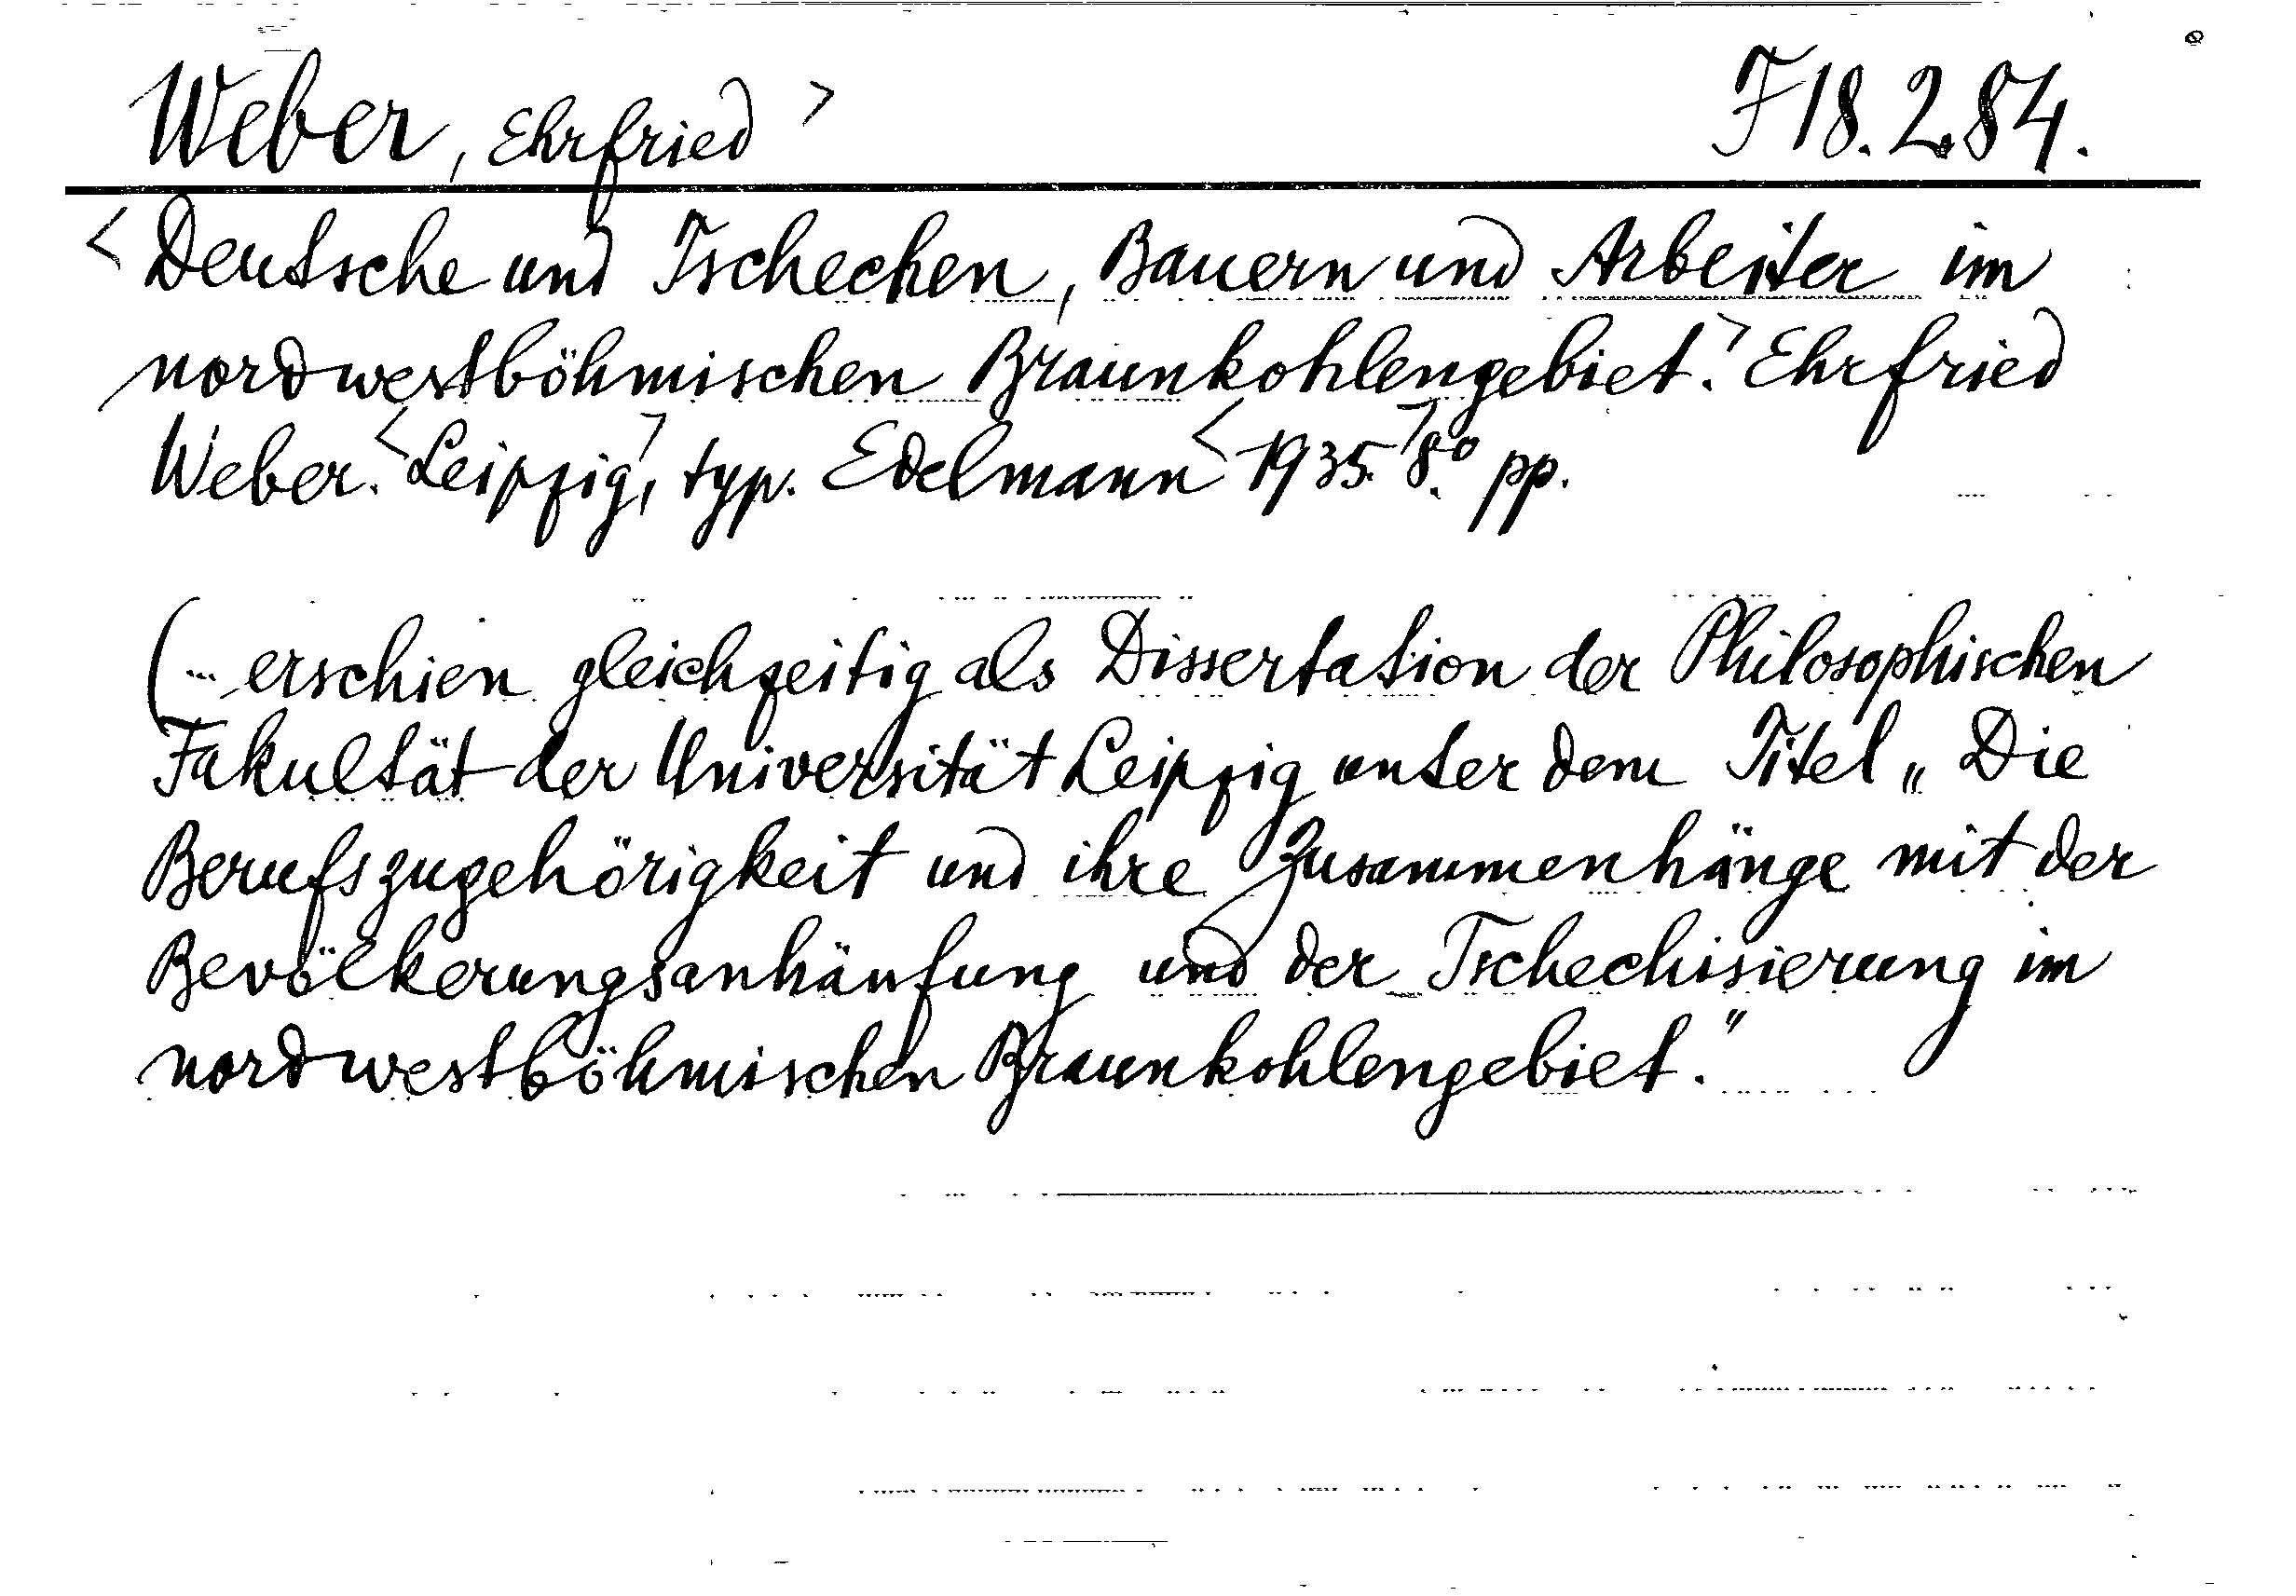 Weber, Ehrfried > F 18.2.84.
<Deutsche und Tschechen, Bauern und Arbeiter im
nordwestböhmischen Braunkohlengebiet.> Ehrfried
Weber. <Leipzig>, typ. Edelmann <1935.> 8.º pp.
(... erschien gleichzeitig als Dissertation der Philosophischen
Fakultät der Universität Leipzig unter dem Titel „Die
Berufszugehörigkeit und ihre Zusammenhänge mit der
Bevölkerungsanhäufung und der Tschechisierung im
nordwestböhmischen Braunkohlengebiet."